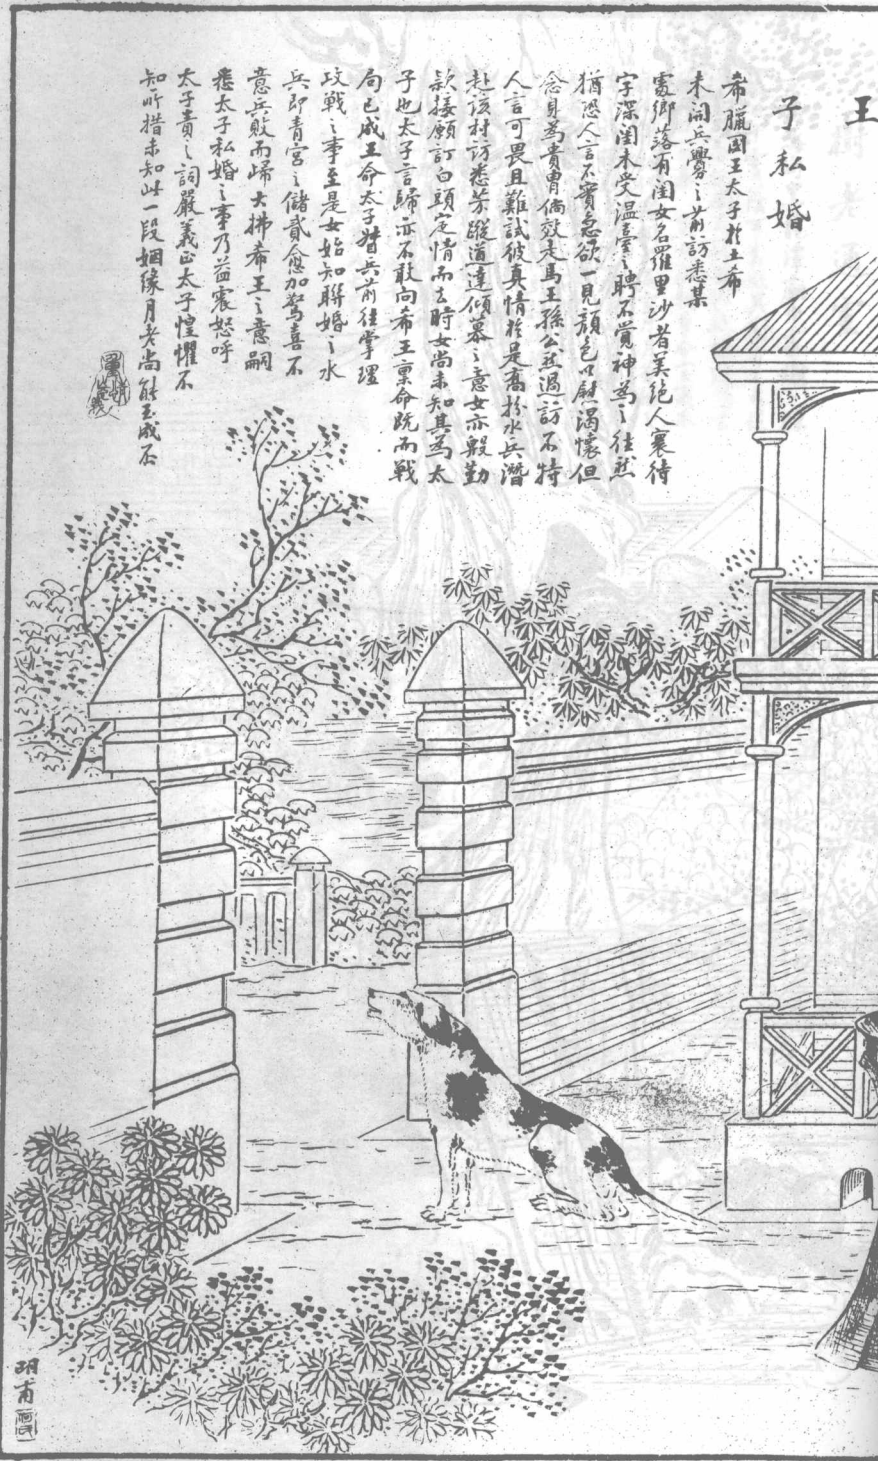 王
子私婚
希臘國王太子於土希
未開兵釁之前訪悉某
處鄉落有閨女名羅里沙者美絕人寰待
字深閨未受溫臺之聘不覺神為之往然
猶恐人言不實急欲一見顏色以慰渴懷但
念身為貴胄倘效走馬王孫公然過訪不特
人言可畏且難試彼真情於是喬扮水兵潛
赴該村訪悉芳蹤道達傾慕之意女亦殷勤
款接願訂白頭定情而去時女尚未知其為太
子也太子言歸亦不敢向希王稟命既而戰
局已成王命太子督兵前往掌理
攻戰之事至是女始知聯婚之水
兵即青宮之儲貳愈加驚喜不
意兵敗而歸大拂希王之意嗣
悉太子私婚之事乃益震怒呼
太子責之詞嚴義正太子惶懼不
知所措未知此一段姻緣月老尚能玉成否
明甫